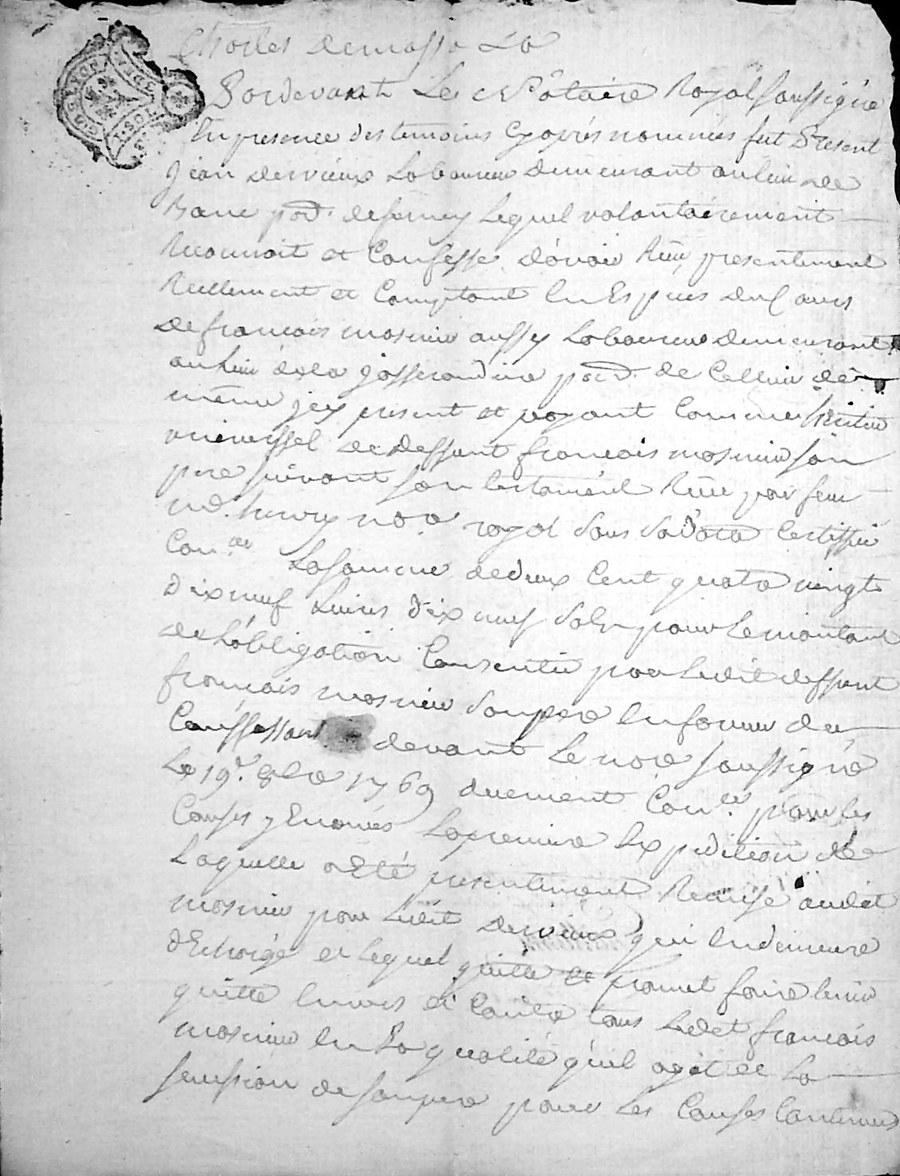 Pardevant Le Notaire Royal soussigné
En presence des temoins cyapres nommés fut Present
Jean dervieux Laboureur demeurant au lieu de
Banc par. de ferney Lequel volontairement
Reconnoit et Confesse d'avoir Reçu presentement
Reellement et Comptant En Especes du Cours
de francois mosnier aussy Laboureur demeurant
au lieu de la josserandire par. de Cellieu de
même jcy present et payant Comme heritier
universel de deffunt francois mosnier son
pere suivant son testament Reçu par feu
md. henry nore royal sous sa datte Certiffié
Con.le La somme de deux Cent quatre vingts
dixneuf Livres dix neuf sols pour Le montant
de L'obligation Consentie par Ledit deffunt
francois mosnier son pere En faveur du
Confessant devant Le nore soussigné
Le 19e. 8bre 1769 duement Con.lée pour les
Causes y Enoncées La premiere Expedition de
Laquelle a Eté presentement Remise audit
mosnier par Ledit dervieux qui En demeure
déchargé et Lequel quitte et promet faire tenir
quitte Envers et Contre tous Ledit francois
mosnier En La qualité qu'il agit et La
sucession de son pere pour Les Causes Contenues